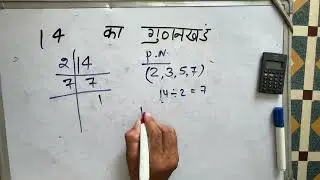 14 का गुणनखंड
2 | 14
7 | 7
1
P.N
(2, 3, 5, 7)
14 ÷ 2 = 7